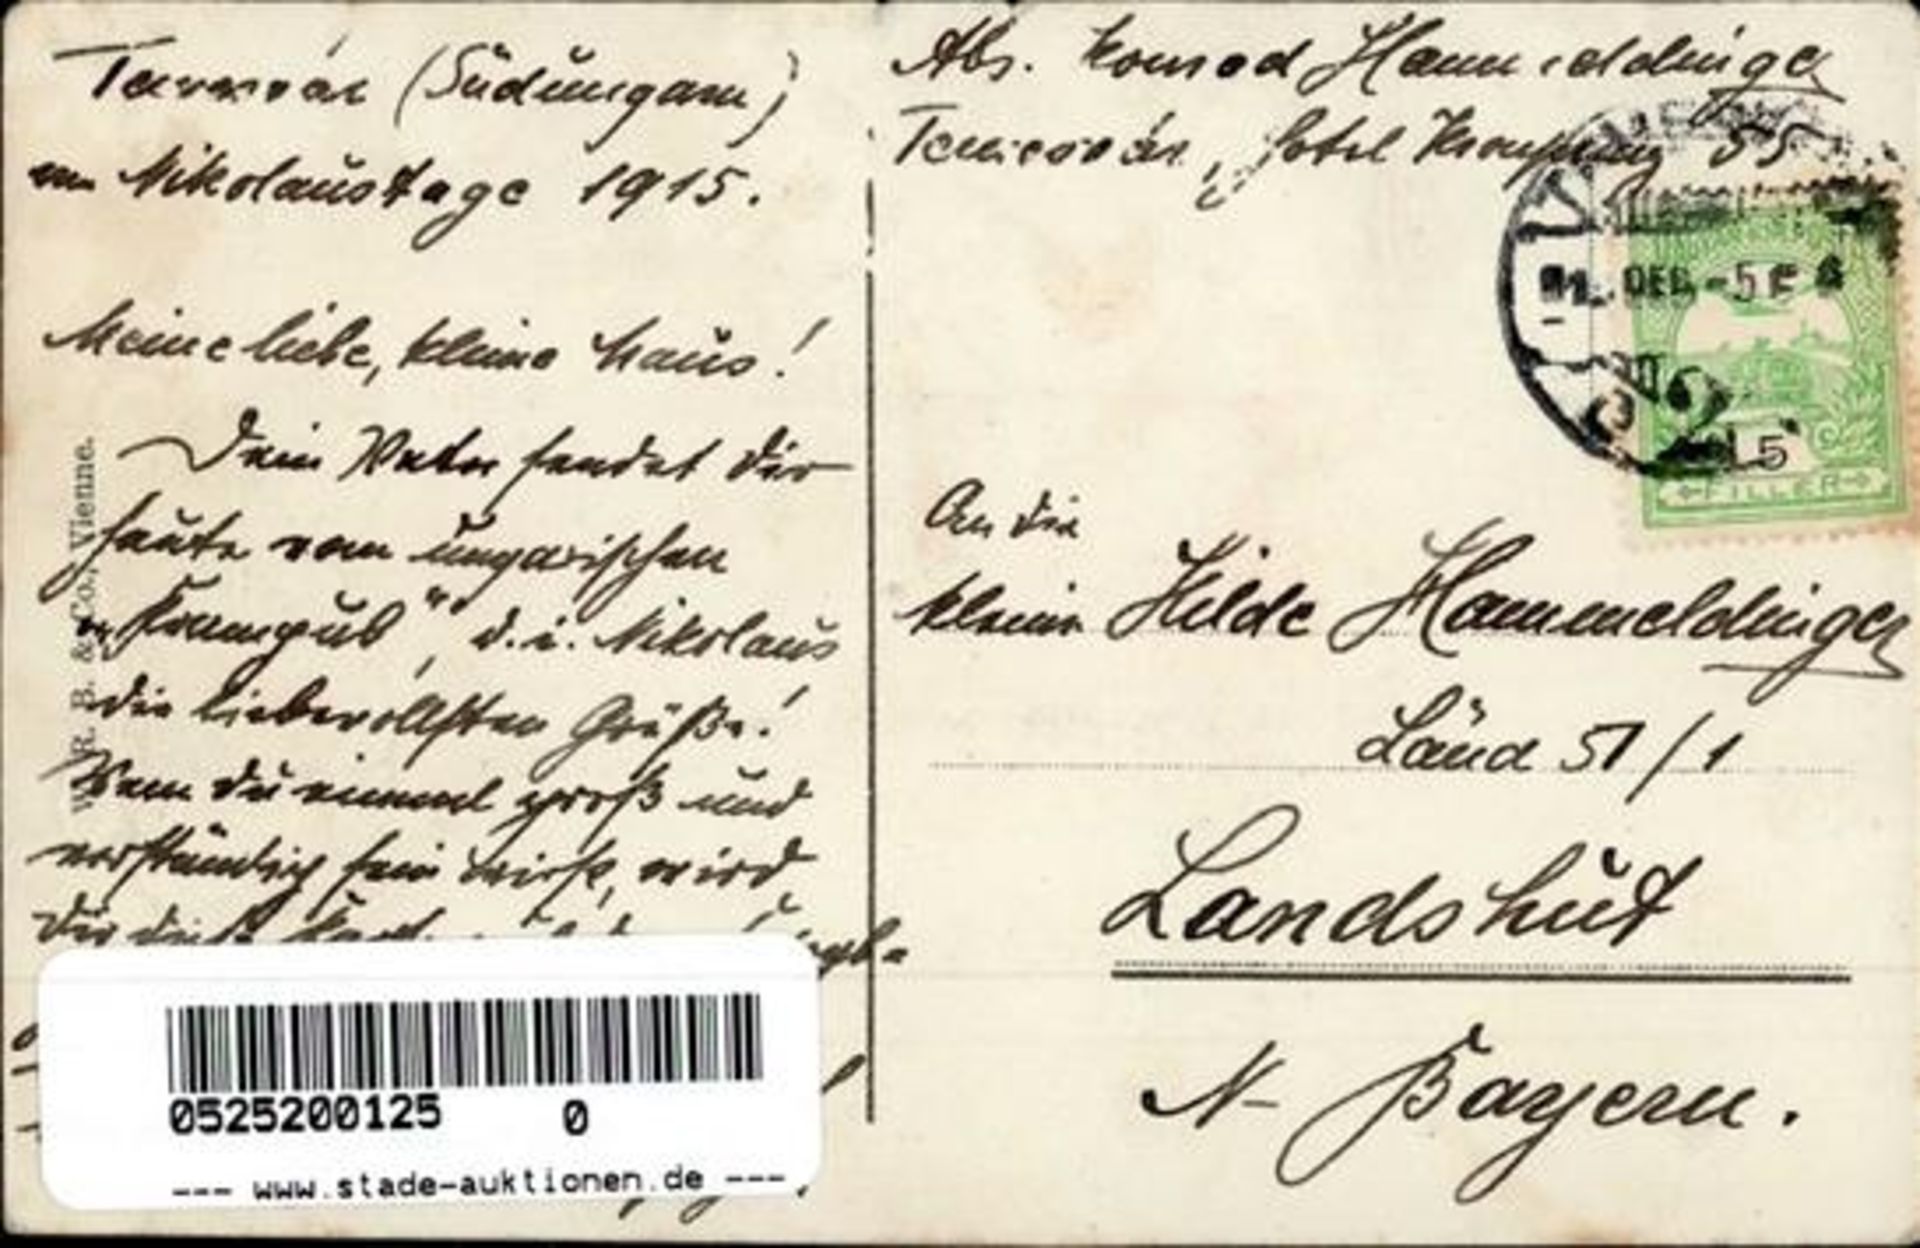 Temesvár (Südungarn)
am Nikolaustage 1915.
Meine liebe, kleine Maus!
Dein Vater sendet Dir
heute vom ungarischen
„Krampus“, d. i. Nikolaus
die liebevollsten Grüße!
Wenn Du einmal groß und
verständig sein wirst, wird
Dir diese
W. R. B. & Co., Vienne.
Abs. Konrad Hammeldinger
Temesvár, Hotel Kronprinz 55
DEC. -5
5
FILLER
An die
kleine Hilde Hammeldinger
Länd 51/1
Landshut
N-Bayern.
0525200125 0
--- www.stade-auktionen.de ---